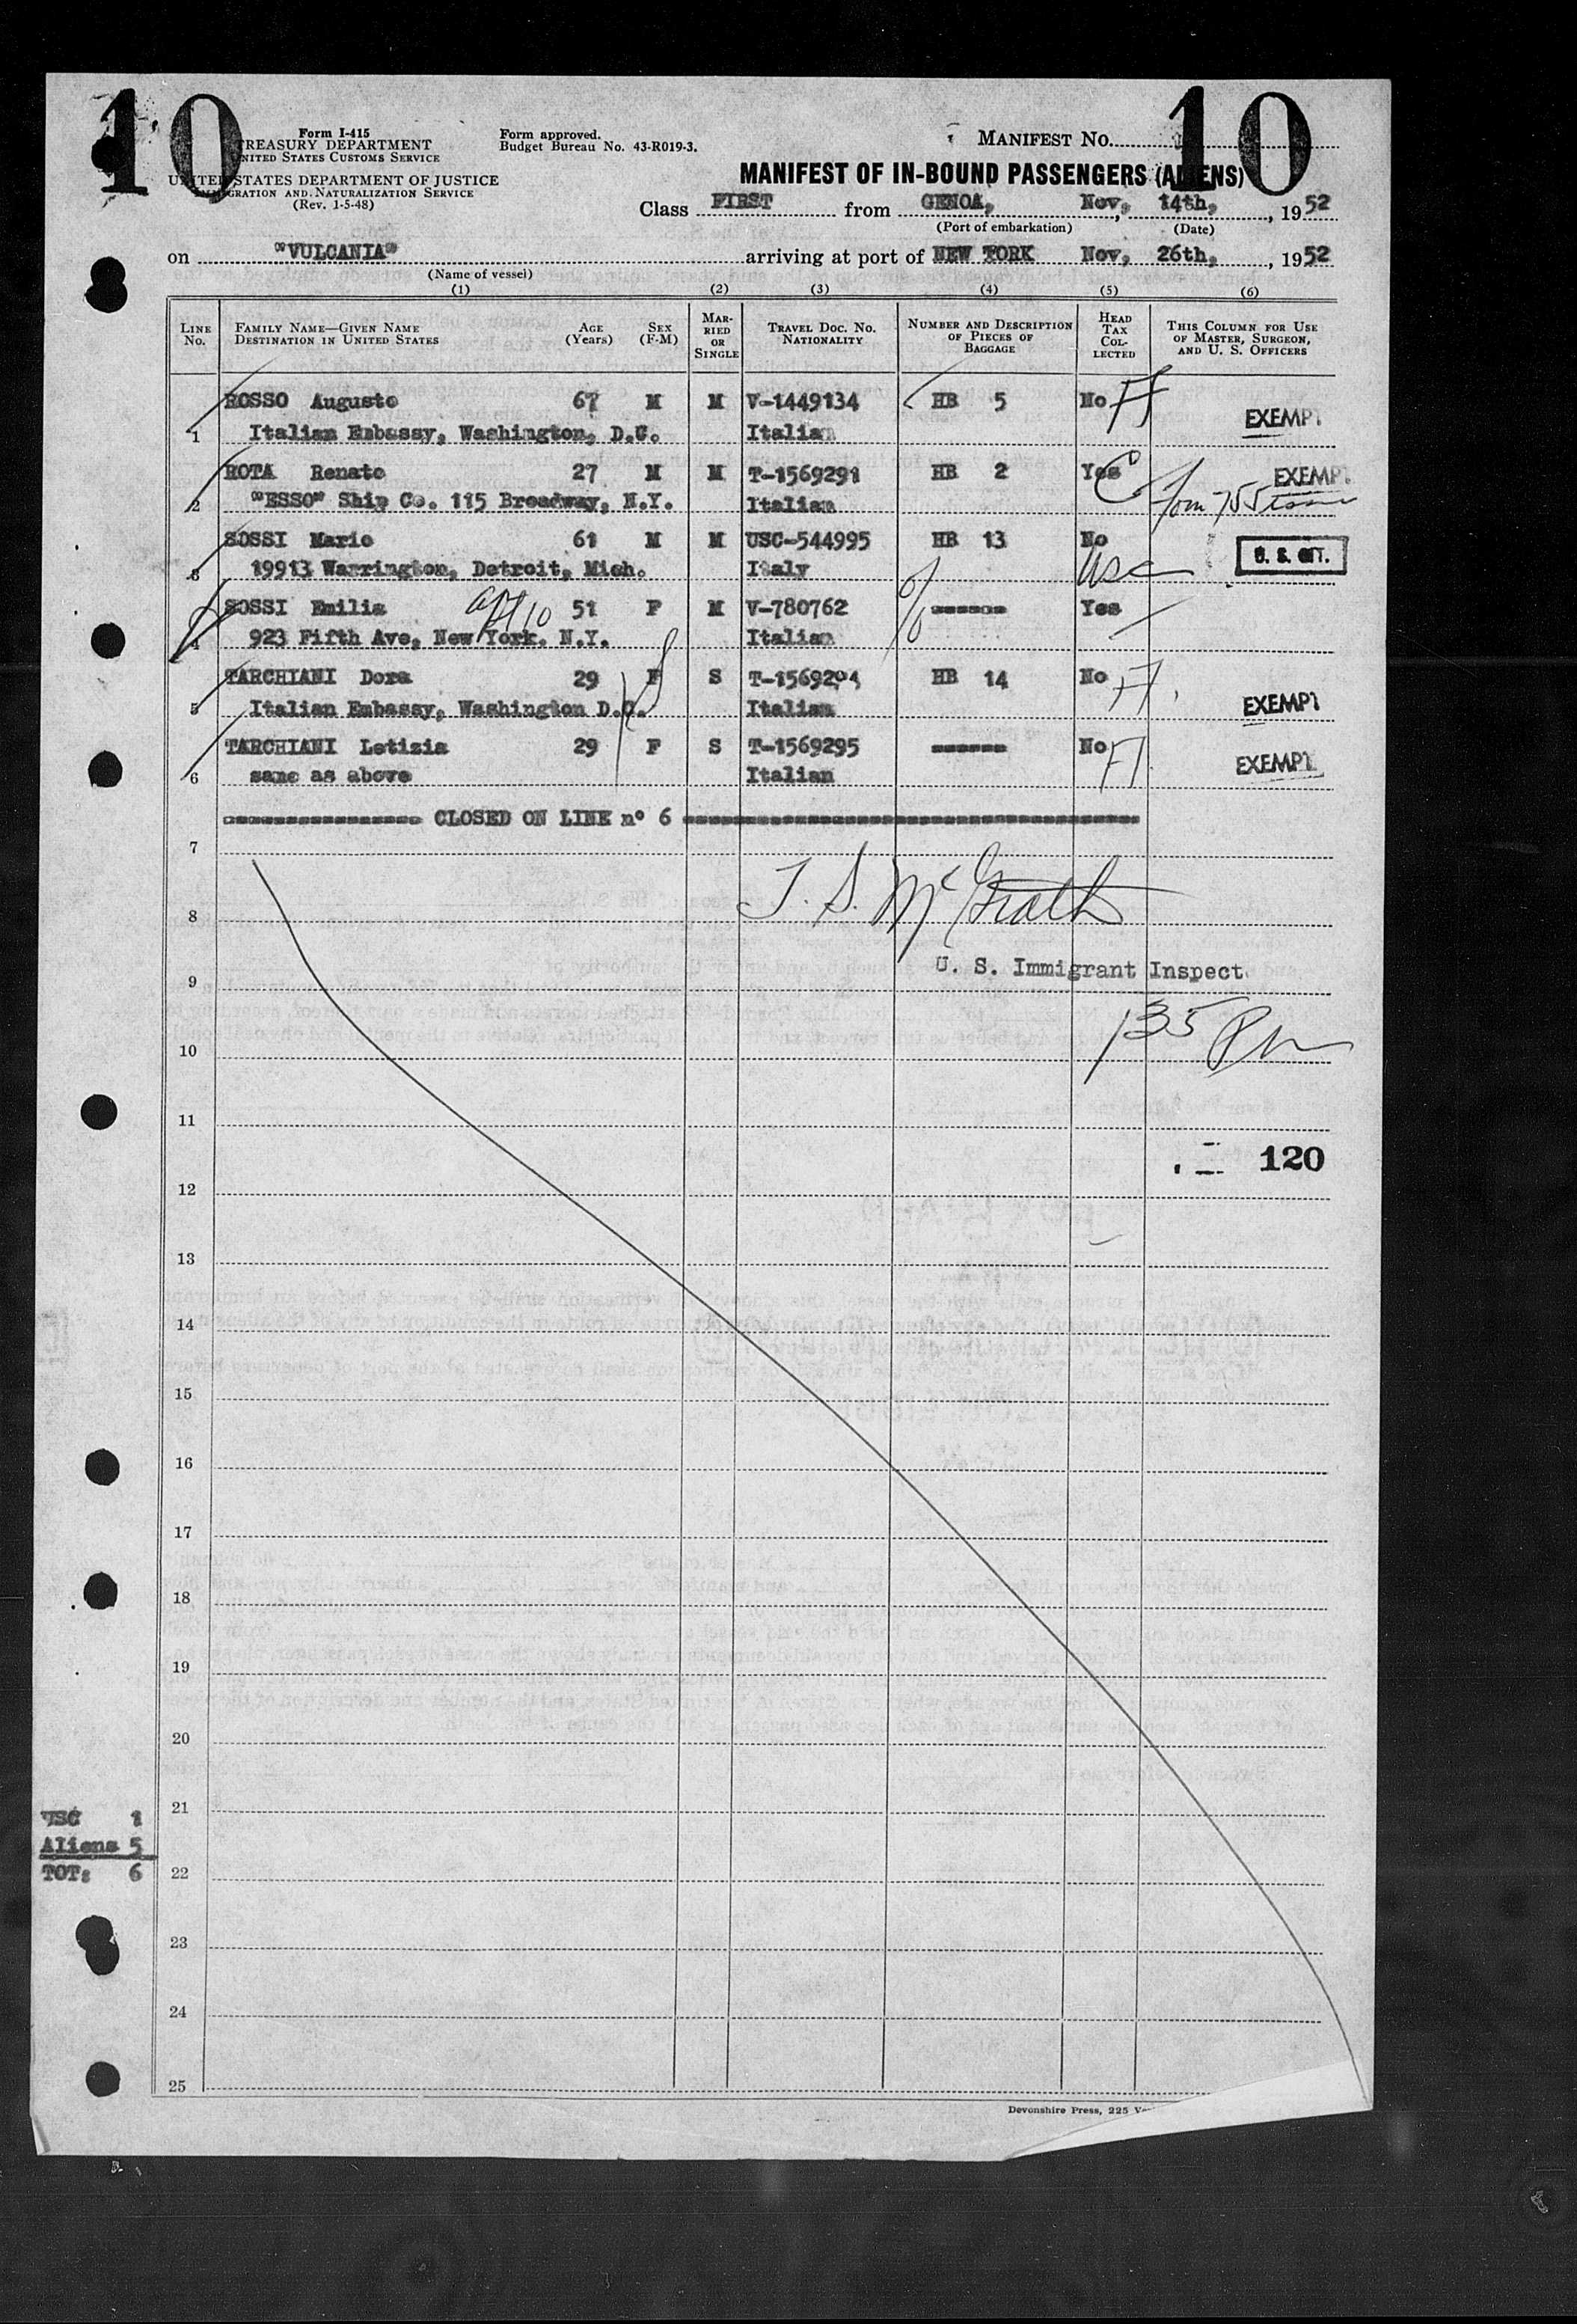 10 10
Form I-415
TREASURY DEPARTMENT
UNITED STATES CUSTOMS SERVICE
UNITED STATES DEPARTMENT OF JUSTICE
IMMIGRATION AND NATURALIZATION SERVICE
(Rev. 1-5-48)
Form approved.
Budget Bureau No. 43-R019-3.
MANIFEST No.
MANIFEST OF IN-BOUND PASSENGERS (ALIENS)
Class FIRST from GENOA, Nov, 14th, , 1952
(Port of embarkation) (Date)
on "VULCANIA" arriving at port of NEW YORK Nov, 26th, , 1952
(Name of vessel)
(1) (2) (3) (4) (5) (6)
LINE No. FAMILY NAME—GIVEN NAME DESTINATION IN UNITED STATES AGE (Years) SEX (F-M) MARRIED OR SINGLE TRAVEL DOC. NO. NATIONALITY NUMBER AND DESCRIPTION OF PIECES OF BAGGAGE HEAD TAX COLLECTED THIS COLUMN FOR USE OF MASTER, SURGEON, AND U. S. OFFICERS
ROSSO Augusto 67 M M V-1449134 HB 5 No
1 Italian Embassy, Washington, D.C. Italian EXEMPT
ROTA Renato 27 M M T-1569291 HB 2 Yes C EXEMPT
2 "ESSO" Ship Co. 115 Broadway, N.Y. Italian
SOSSI Mario 61 M M USC-544995 HB 13 No U. S. CIT.
3 19913 Warrington, Detroit, Mich. Italy USC
SOSSI Emilia apt 10 51 F M V-780762 ------ Yes
4 923 Fifth Ave, New York. N.Y. Italian
TARCHIANI Dora 29 F S T-1569294 HB 14 No
5 Italian Embassy, Washington D.C. Italian EXEMPT
TARCHIANI Letizia 29 F S T-1569295 ------ No
6 same as above Italian EXEMPT
CLOSED ON LINE n° 6
7
T. S. McGrath
8
U. S. Immigrant Inspect
9
135 Pm
10
11
120
12
13
14
15
16
17
18
19
20
21
USC 1
Aliens 5
TOT: 6
22
23
24
25
Devonshire Press, 225